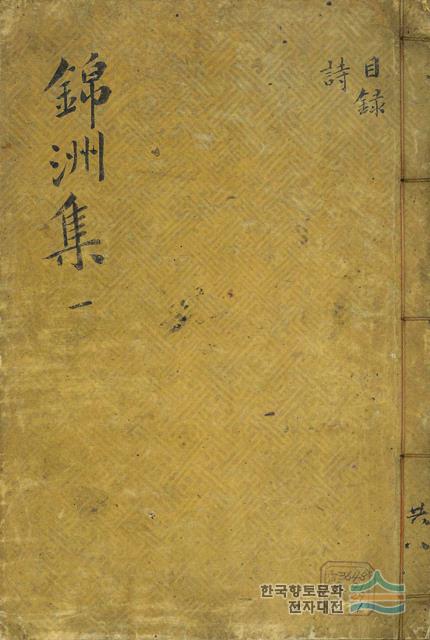 錦洲集 一
目録
詩
共八
한국향토문화
전자대전